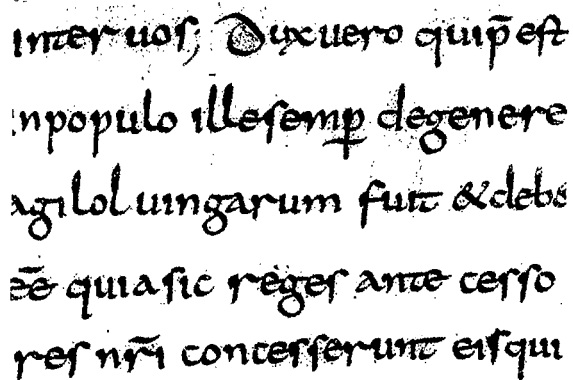 inter uos; Dux uero qui p̄est
inpopulo ille semꝑ degenere
agiloluingarum fuit & debe
eē quia sic reges ante cesso
res nr̄i concesserunt eis qui